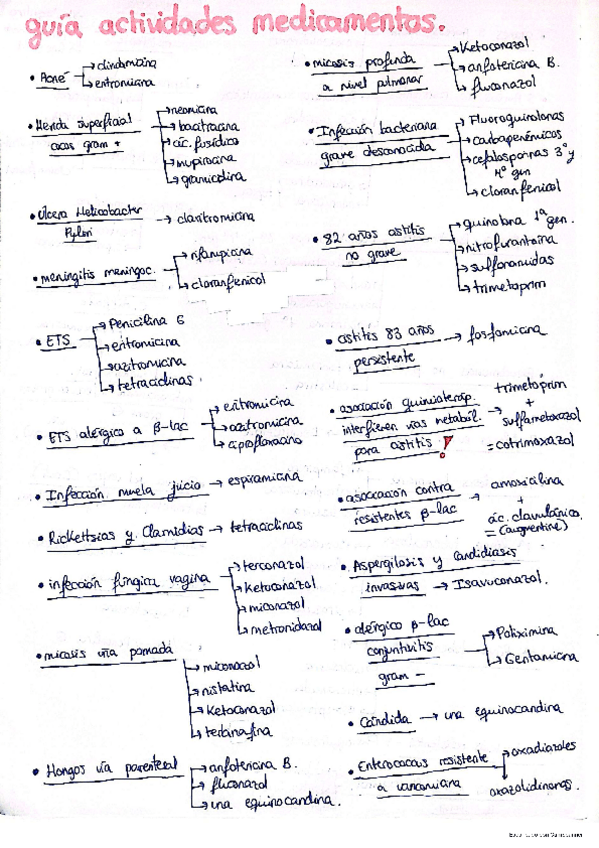 guía actividades medicamentos.
• Acné → clindamicina
→ eritromicina
• Herida superficial
cocos gram +
→ neomicina
→ bacitracina
→ ác. fusídico
→ mupirocina
→ gramicidina
• Úlcera Helicobacter
Pylori
→ claritromicina
• meningitis meningoc.
→ rifampicina
→ cloranfenicol
• ETS
→ Penicilina G
→ eritromicina
→ azitromicina
→ tetraciclinas.
• ETS alérgico a β-lac
→ eritromicina
→ azitromicina
→ ciprofloxacino
• Infección muela juicio → espiramicina
• Rickettsias y Clamidias → tetraciclinas
• infección fúngica vagina
→ terconazol
→ ketoconazol
→ miconazol
→ metronidazol
• micosis vía pomada
→ miconazol
→ nistatina
→ Ketoconazol
→ terbinafina
• Hongos vía parenteral
→ anfotericina B.
→ fluconazol
→ una equinocandina.
• micosis profunda
a nivel pulmonar
→ Ketoconazol
→ anfotericina B.
→ fluconazol
• Infección bacteriana
grave desconocida
→ Fluoroquinolonas
→ carbapenémicos
→ cefalosporinas 3º y
4º gen
→ cloranfenicol
• 82 años cistitis
no grave
→ quinolona 1ª gen.
→ nitrofurantoína
→ sulfonamidas
→ trimetoprim
• cistitis 83 años
persistente
→ fosfomicina
• asociación quimioteráp.
interfieren vías metaból.
para cistitis !
→ trimetóprim
+
sulfametoxazol
= cotrimoxazol
• asociación contra
resistentes β-lac
→ amoxicilina
+
ác. clavulánico.
= (augmentine)
• Aspergilosis y Candidiasis
invasivas → Isavuconazol.
• alérgico β-lac
conjuntivitis
gram -
→ Polimixina
→ Gentamicina
• Cándida → una equinocandina
• Enterococcus resistente
a vancomicina
→ oxadiazoles
oxazolidinonas.